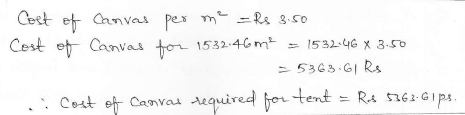 Cost of Canvas per m² = Rs 3.50
Cost of Canvas for 1532.46m² = 1532.46 x 3.50
= 5363.61 Rs
∴ Cost of Canvas required for tent = Rs 5363.61ps.